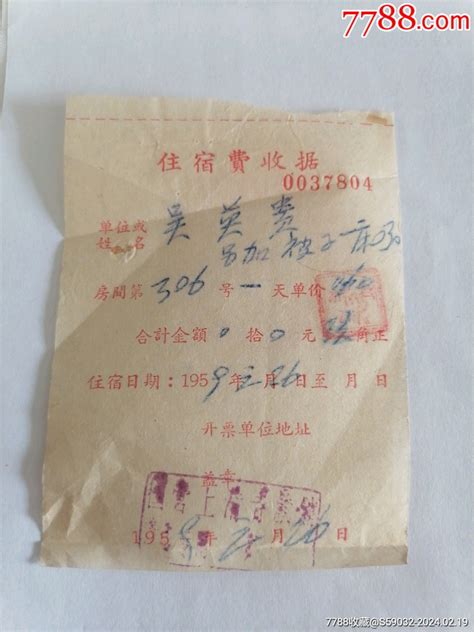 7788.com
住宿費收据
0037804
单位或
姓名 吴英贵
另加被子一床
房間第306号一天单价
合計金額0拾0元 角正
住宿日期：1959年 月26日至 月 日
开票单位地址
盖章
195 年2月26日
7788收藏@S59032-2024.02.19